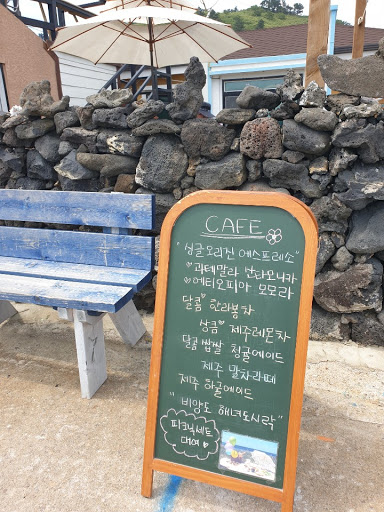 CAFE
"싱글오리진 에스프레소"
♥과테말라 안티구아
♥에티오피아 모모라
달콤♥ 한라봉차
상큼♥ 제주레몬차
달콤 쌉쌀 청귤에이드
제주 말차라떼
제주 하귤에이드
"비양도 해녀도시락"
피크닉세트
대여 ♥